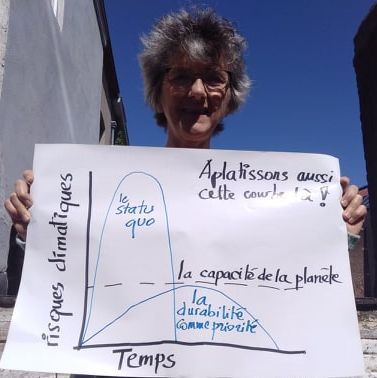 Aplatissons aussi
cette courbe là !
le
statu
quo
la capacité de la planète
la
durabilité
comme priorité
risques climatiques
Temps